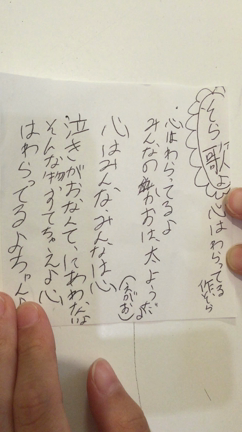 そら歌
心はわらってる
作そら
・心はわらってるよ
みんなのかおは、太ようだ
よ
(えがお)
心はみんな。みんなは心
泣きがおなんて、にあわないよ
そんな物すてちゃえよ心
はわらってるよちゃんと